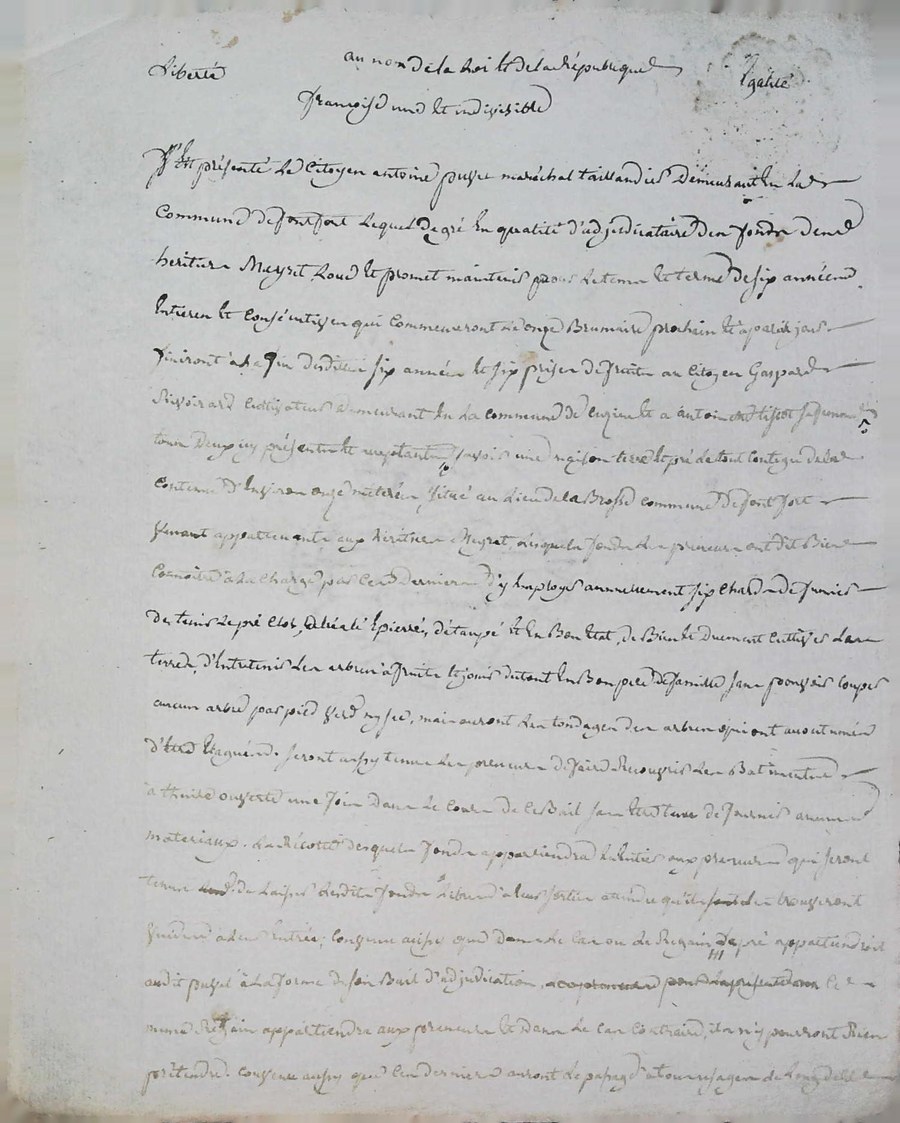 Liberté au nom de la Loi et de la République Egalité
françoise une et indivisible
S'est présenté Le Citoyen antoine puyet maréchal taillandier Demeurant En La
Commune de fontfort Lequel de gré En qualité d'adjudicataire Des fonds Des
heritiers Meyret Loue et promet maintenir pour Le tems et terme de six années
Entieres et Consécutives qui Commenceront Le onze Brumaire prochain et a pareil jour
finiront à La fin desdittes six années et six prises de fruits au Citoyen Gaspard
Cultivateur Demeurant En La Commune de et a antoine
tous Deux icy présents et acceptants savoir une maison terre et pré Le tout Contigu de La
Contenue D'Environ onze meterées situé au Lieu de La Brosse Commune de font fort
appartenants aux héritiers Meyret, Lesquels fonds Les preneurs ont dit Bien
Connoitre à La Charge par Ces Derniers D'y Employer annuellement six Chards de fumier
de tenir Le pré Clos, épierré, détaupé et En Bon Etat, de Bien et Duement Cultiver Les
terres, d'Entretenir Les arbres à fruits et jouir du tout En Bon pere de famille sans pouvoir Couper
aucun arbre par pied verd ny sec, mais auront Les tondages des arbres qui ont accoutumés
d'Etre Elagués. seront aussy tenus Les preneurs de faire Recouvrir Les Batiments
à thuile ouverte une fois Dans Le Cours de Ce Bail sans Etre tenus de fournir aucuns
materiaux. La Récolte desquels fonds appartiendra En Entier aux preneurs qui seront
tenus de Laisser Lesdits fonds à Leur sortie attendu qu'ils Les trouveront
à Leur Entrée; Convenu aussy que Dans Le Cas ou Le Regain Du pré appartiendroit
audit puyet à La forme de son Bail d'adjudication, Ce
meme Regain appartiendra aux preneurs et Dans Le Cas Contraire, ils n'y pourront Rien
prétendre. Convenu aussy que Ces derniers auront Le passage à tous usages de Long